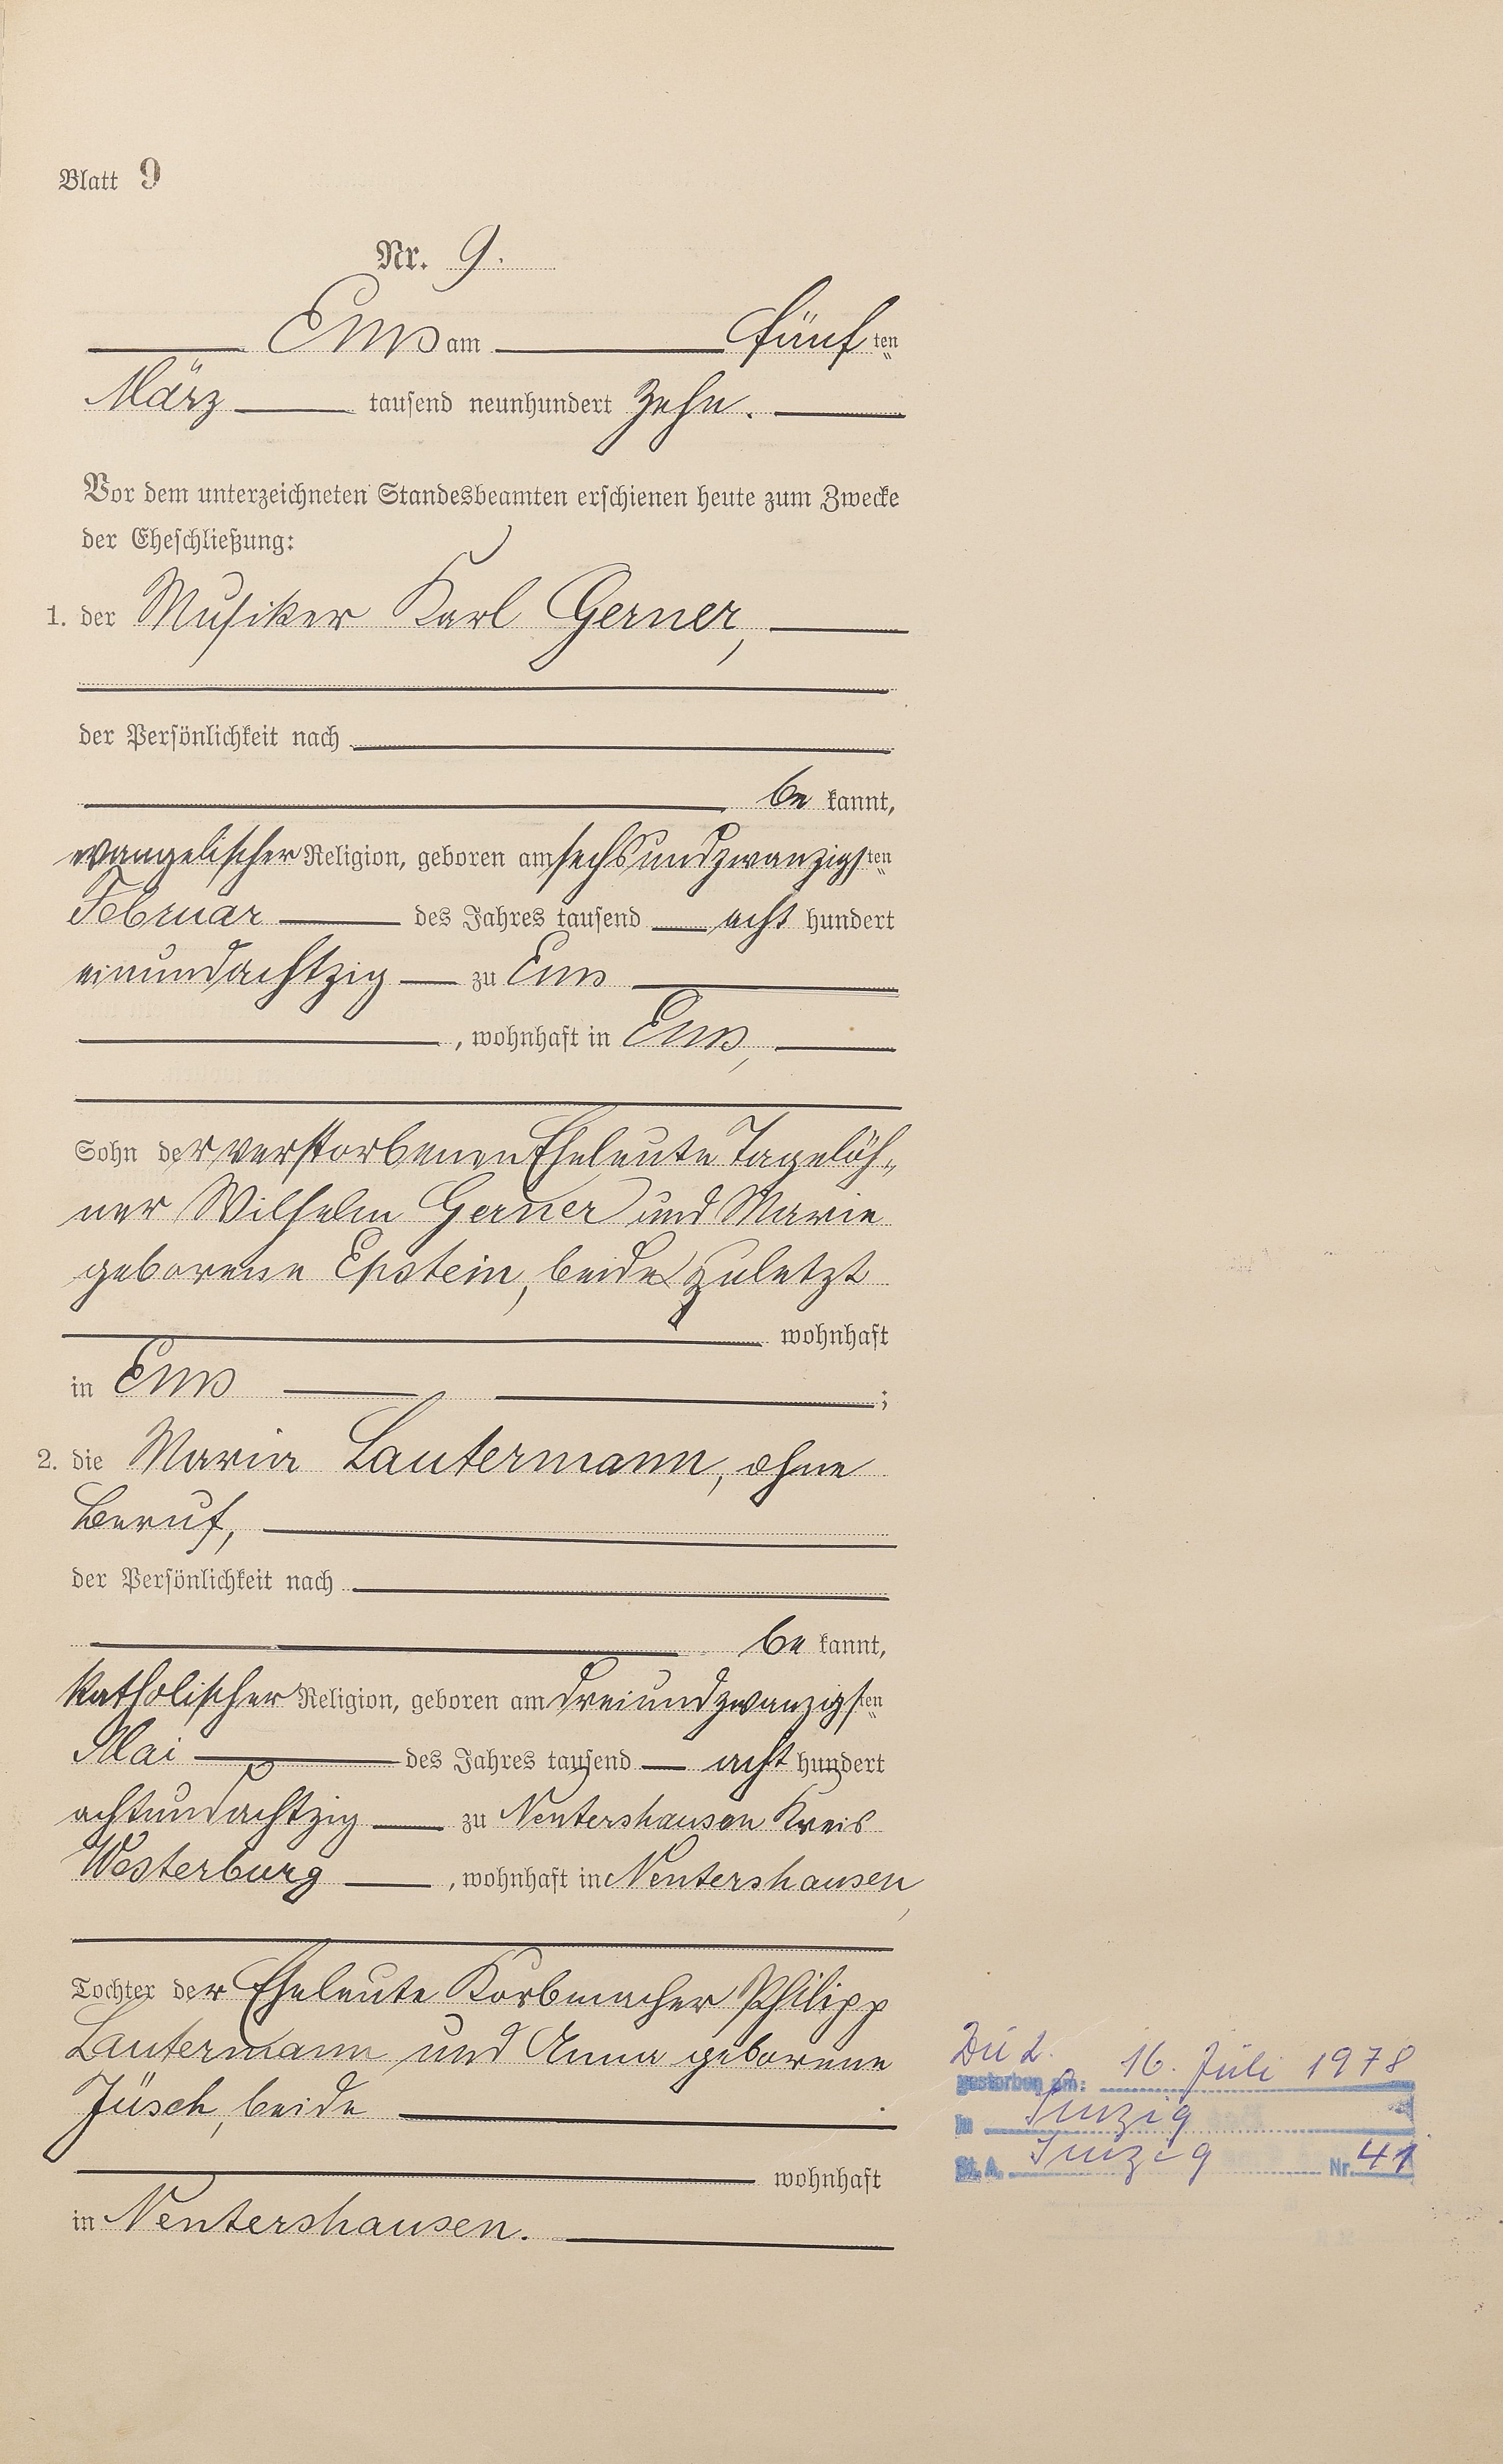 Blatt 9
Nr. 9.
Ems am fünften
März tausend neunhundert zehn.
Vor dem unterzeichneten Standesbeamten erschienen heute zum Zwecke
der Eheschließung:
1. der Musiker Karl Gerner,
der Persönlichkeit nach
be kannt,
evangelischer Religion, geboren am sechsundzwanzigsten
Februar des Jahres tausend acht hundert
einundachtzig zu Ems
, wohnhaft in Ems,
Sohn der verstorbenen Eheleute Tagelöh-
ner Wilhelm Gerner und Marie
geborene Epstein, beide zuletzt
wohnhaft
in Ems ;
2. die Maria Lautermann, ohne
Beruf,
der Persönlichkeit nach
be kannt,
katholischer Religion, geboren am dreiundzwanzigsten
Mai des Jahres tausend acht hundert
achtundachtzig zu Nentershausen Kreis
Westerburg , wohnhaft in Nentershausen,
Tochter der Eheleute Korbmacher Philipp
Lautermann und Anna geborene
Jüsch, beide
wohnhaft
in Nentershausen.
Zu 2.
gestorben am: 16. Juli 1978
in Sinzig
St. A. Sinzig Nr. 41